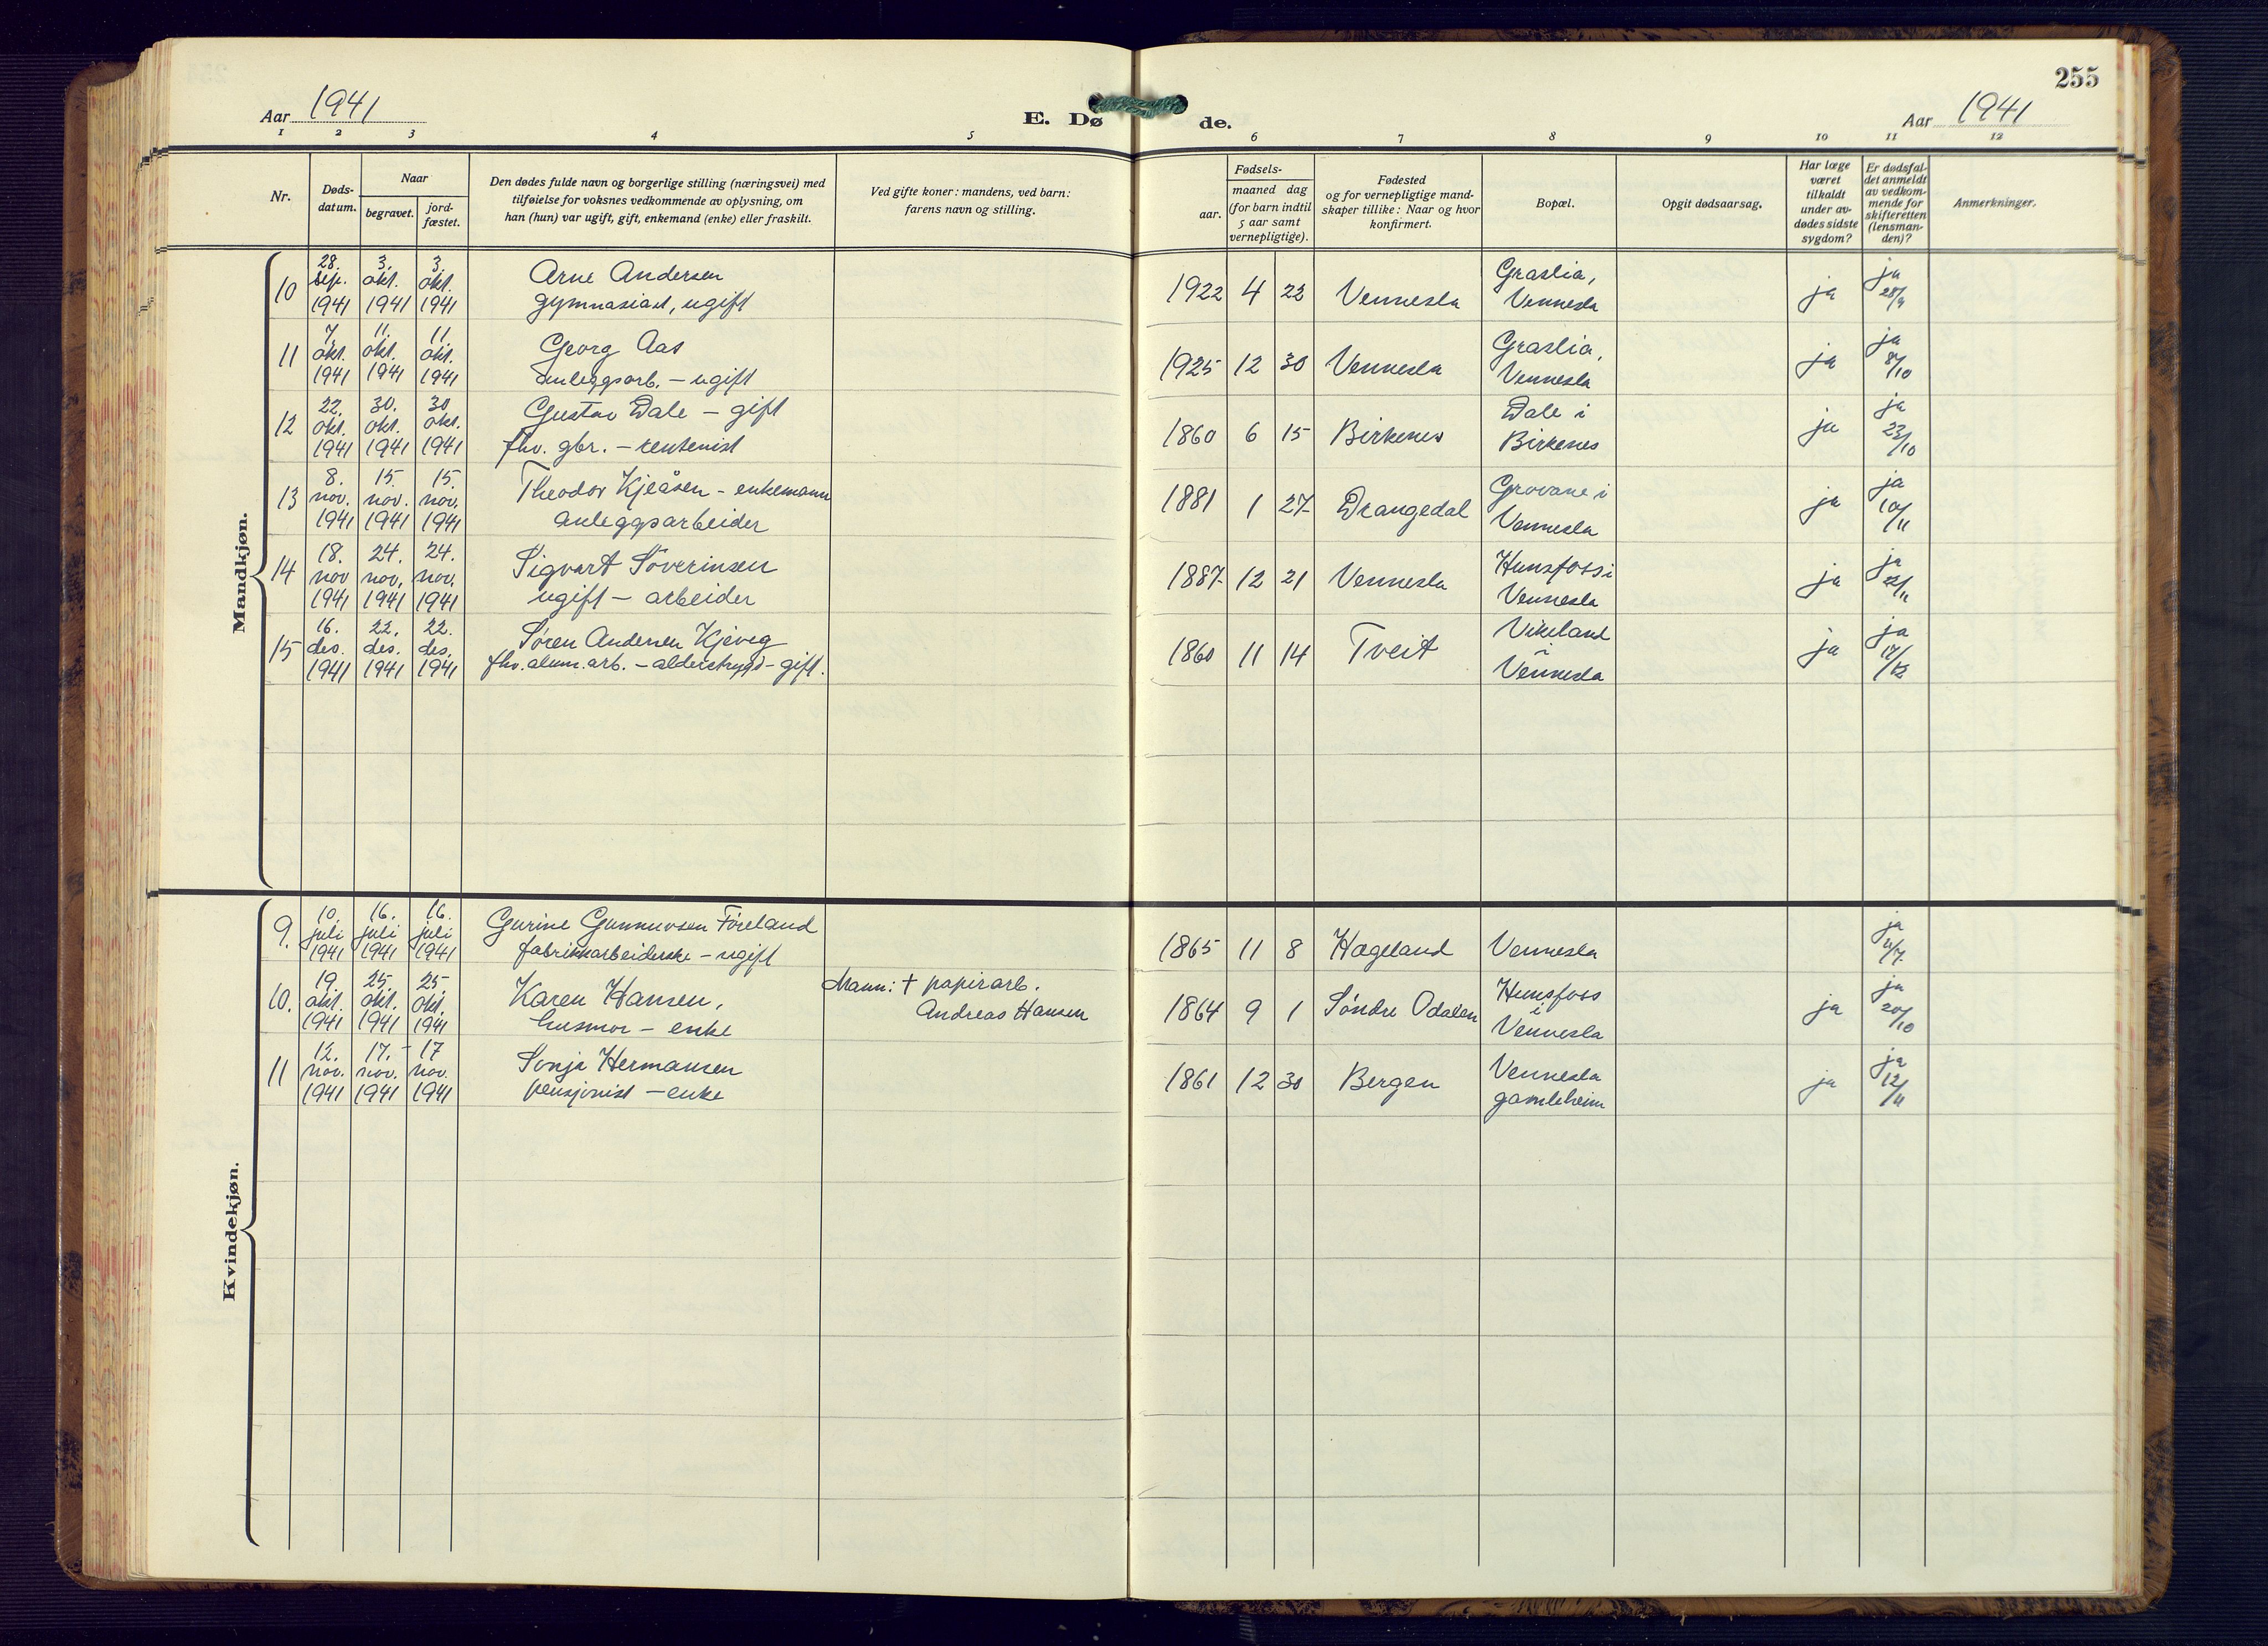 255
Aar 1941
E. Dø de.
Aar 1941
1 2 3 4 5 6 7 8 9 10 11 12
Nr.
Døds-
datum.
Naar
begravet.
jord-
fæstet.
Den dødes fulde navn og borgerlige stilling (næringsvei) med
tilføielse for voksnes vedkommende av oplysning, om
han (hun) var ugift, gift, enkemand (enke) eller fraskilt.
Ved gifte koner: mandens, ved barn:
farens navn og stilling.
Fødsels-
aar.
maaned dag
(for barn indtil
5 aar samt
vernepligtige).
Fødested
og for vernepligtige mand-
skaper tillike: Naar og hvor
konfirmert.
Bopæl.
Opgit dødsaarsag.
Har læge
været
tilkaldt
under av-
dødes sidste
sygdom?
Er dødsfal-
det anmeldt
av vedkom-
mende for
skifteretten
(lensman-
den)?
Anmerkninger.
Mandkjøn.
28. 3. 3. Arne Andersen Graslia, ja
10 sep. okt. okt. 1922 4 22 Vennesla ja 28/9
1941 1941 1941 gymnasiast, ugift Vennesla
7. 11. 11. Georg Aas Graslia, ja
11 okt. okt. okt. 1925 12 30 Vennesla ja 8/10
1941 1941 1941 anleggsarb. - ugift Vennesla
22. 30. 30 Gustav Dale - gift Dale i ja
12 okt. okt. okt. 1860 6 15 Birkenes ja 23/10
1941 1941 1941 fhv. gbr. - rentenist Birkenes
8. 15. 15. Theodor Kjeåsen - enkemann Grovane i ja
13 nov. nov. nov. 1881 1 27 Drangedal ja 10/11
1941 1941 1941 anleggsarbeider Vennesla
18. 24. 24. Sigvart Söverinsen Hunsfoss i ja
14 nov nov. nov. 1887 12 21 Vennesla ja 22/11
1941 1941 1941 ugift - arbeider Vennesla
16. 22. 22. Søren Andersen Kjeveg Vikeland ja
15 des. des. des. 1860 11 14 Tveit i ja 17/12
1941 1941 1941 fhv. alum. arb. - alderstrygd - gift. Vennesla
Kvindekjøn.
10. 16. 16. Gurine Gunnuvsen Föreland ja
9. juli juli juli 1865 11 8 Hægeland Vennesla
1941 1941 1941 fabrikkarbeiderske - ugift
19. 25. 25. Karen Hansen, Mann: † papirarb. Hunsfoss ja
10. okt. okt. okt. Andreas Hansen 1864 9 1 Söndre Odalen i ja 20/10
1941 1941 1941 husmor - enke Vennesla
12. 17. - 17 Sonja Hermansen Vennesla ja
11 nov. nov. nov. 1861 12 30 Bergen ja 12/11
1941 1941 1941 pensjonist - enke gamleheim